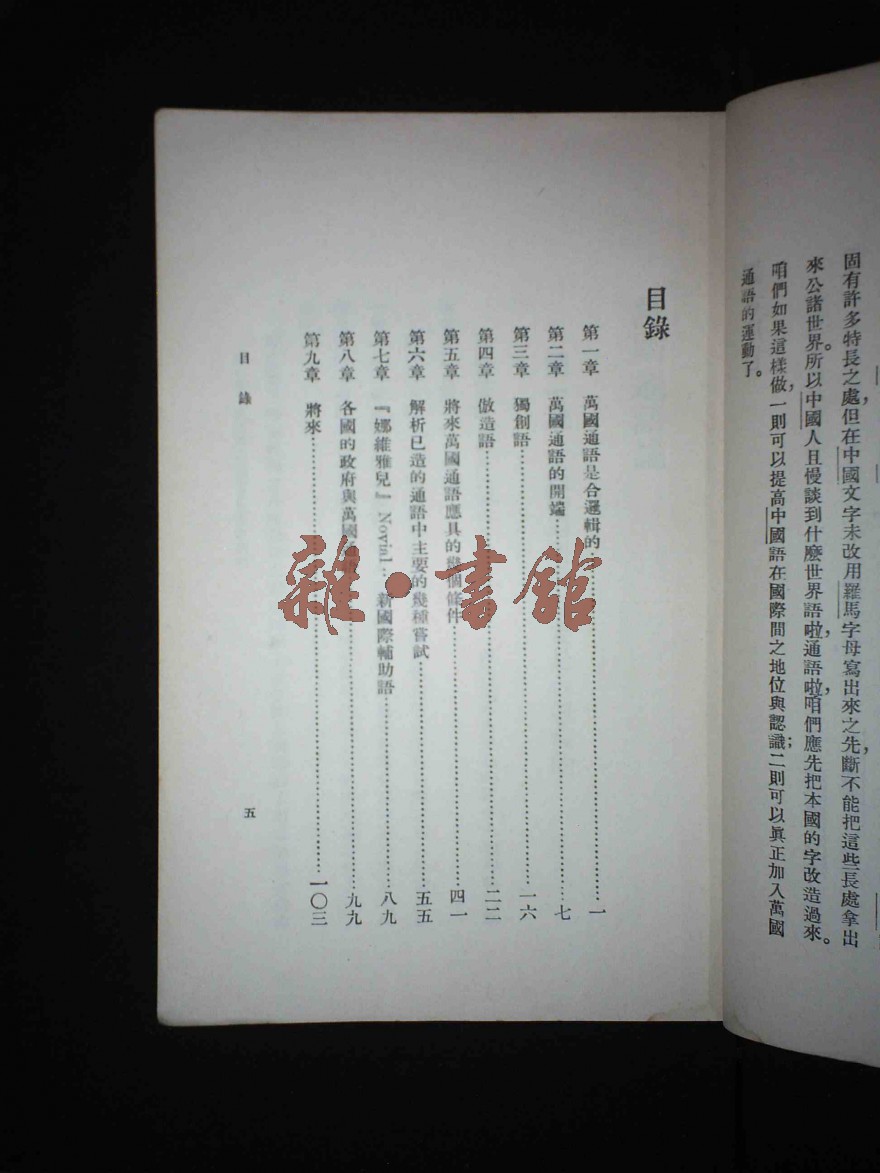 固有許多特長之處，但在中國文字未改用羅馬字母寫出來之先，斷不能把這些長處拿出
來公諸世界。所以中國人且慢談到什麼世界語啦，通語啦，咱們應先把本國的字改造過來。
咱們如果這樣做，一則可以提高中國語在國際間之地位與認識；二則可以眞正加入萬國
通語的運動了。
目錄
第一章 萬國通語是合邏輯的⋯⋯一
第二章 萬國通語的開端⋯⋯七
第三章 獨創語⋯⋯一六
第四章 倣造語⋯⋯二二
第五章 將來萬國通語應具的幾個條件⋯⋯四一
第六章 解析已造的通語中主要的幾種嘗試⋯⋯五五
第七章 『娜維雅兒』Novial⋯新國際輔助語⋯⋯八九
第八章 各國的政府與萬國通語⋯⋯九九
第九章 將來⋯⋯一〇三
目錄
五
雜·書館